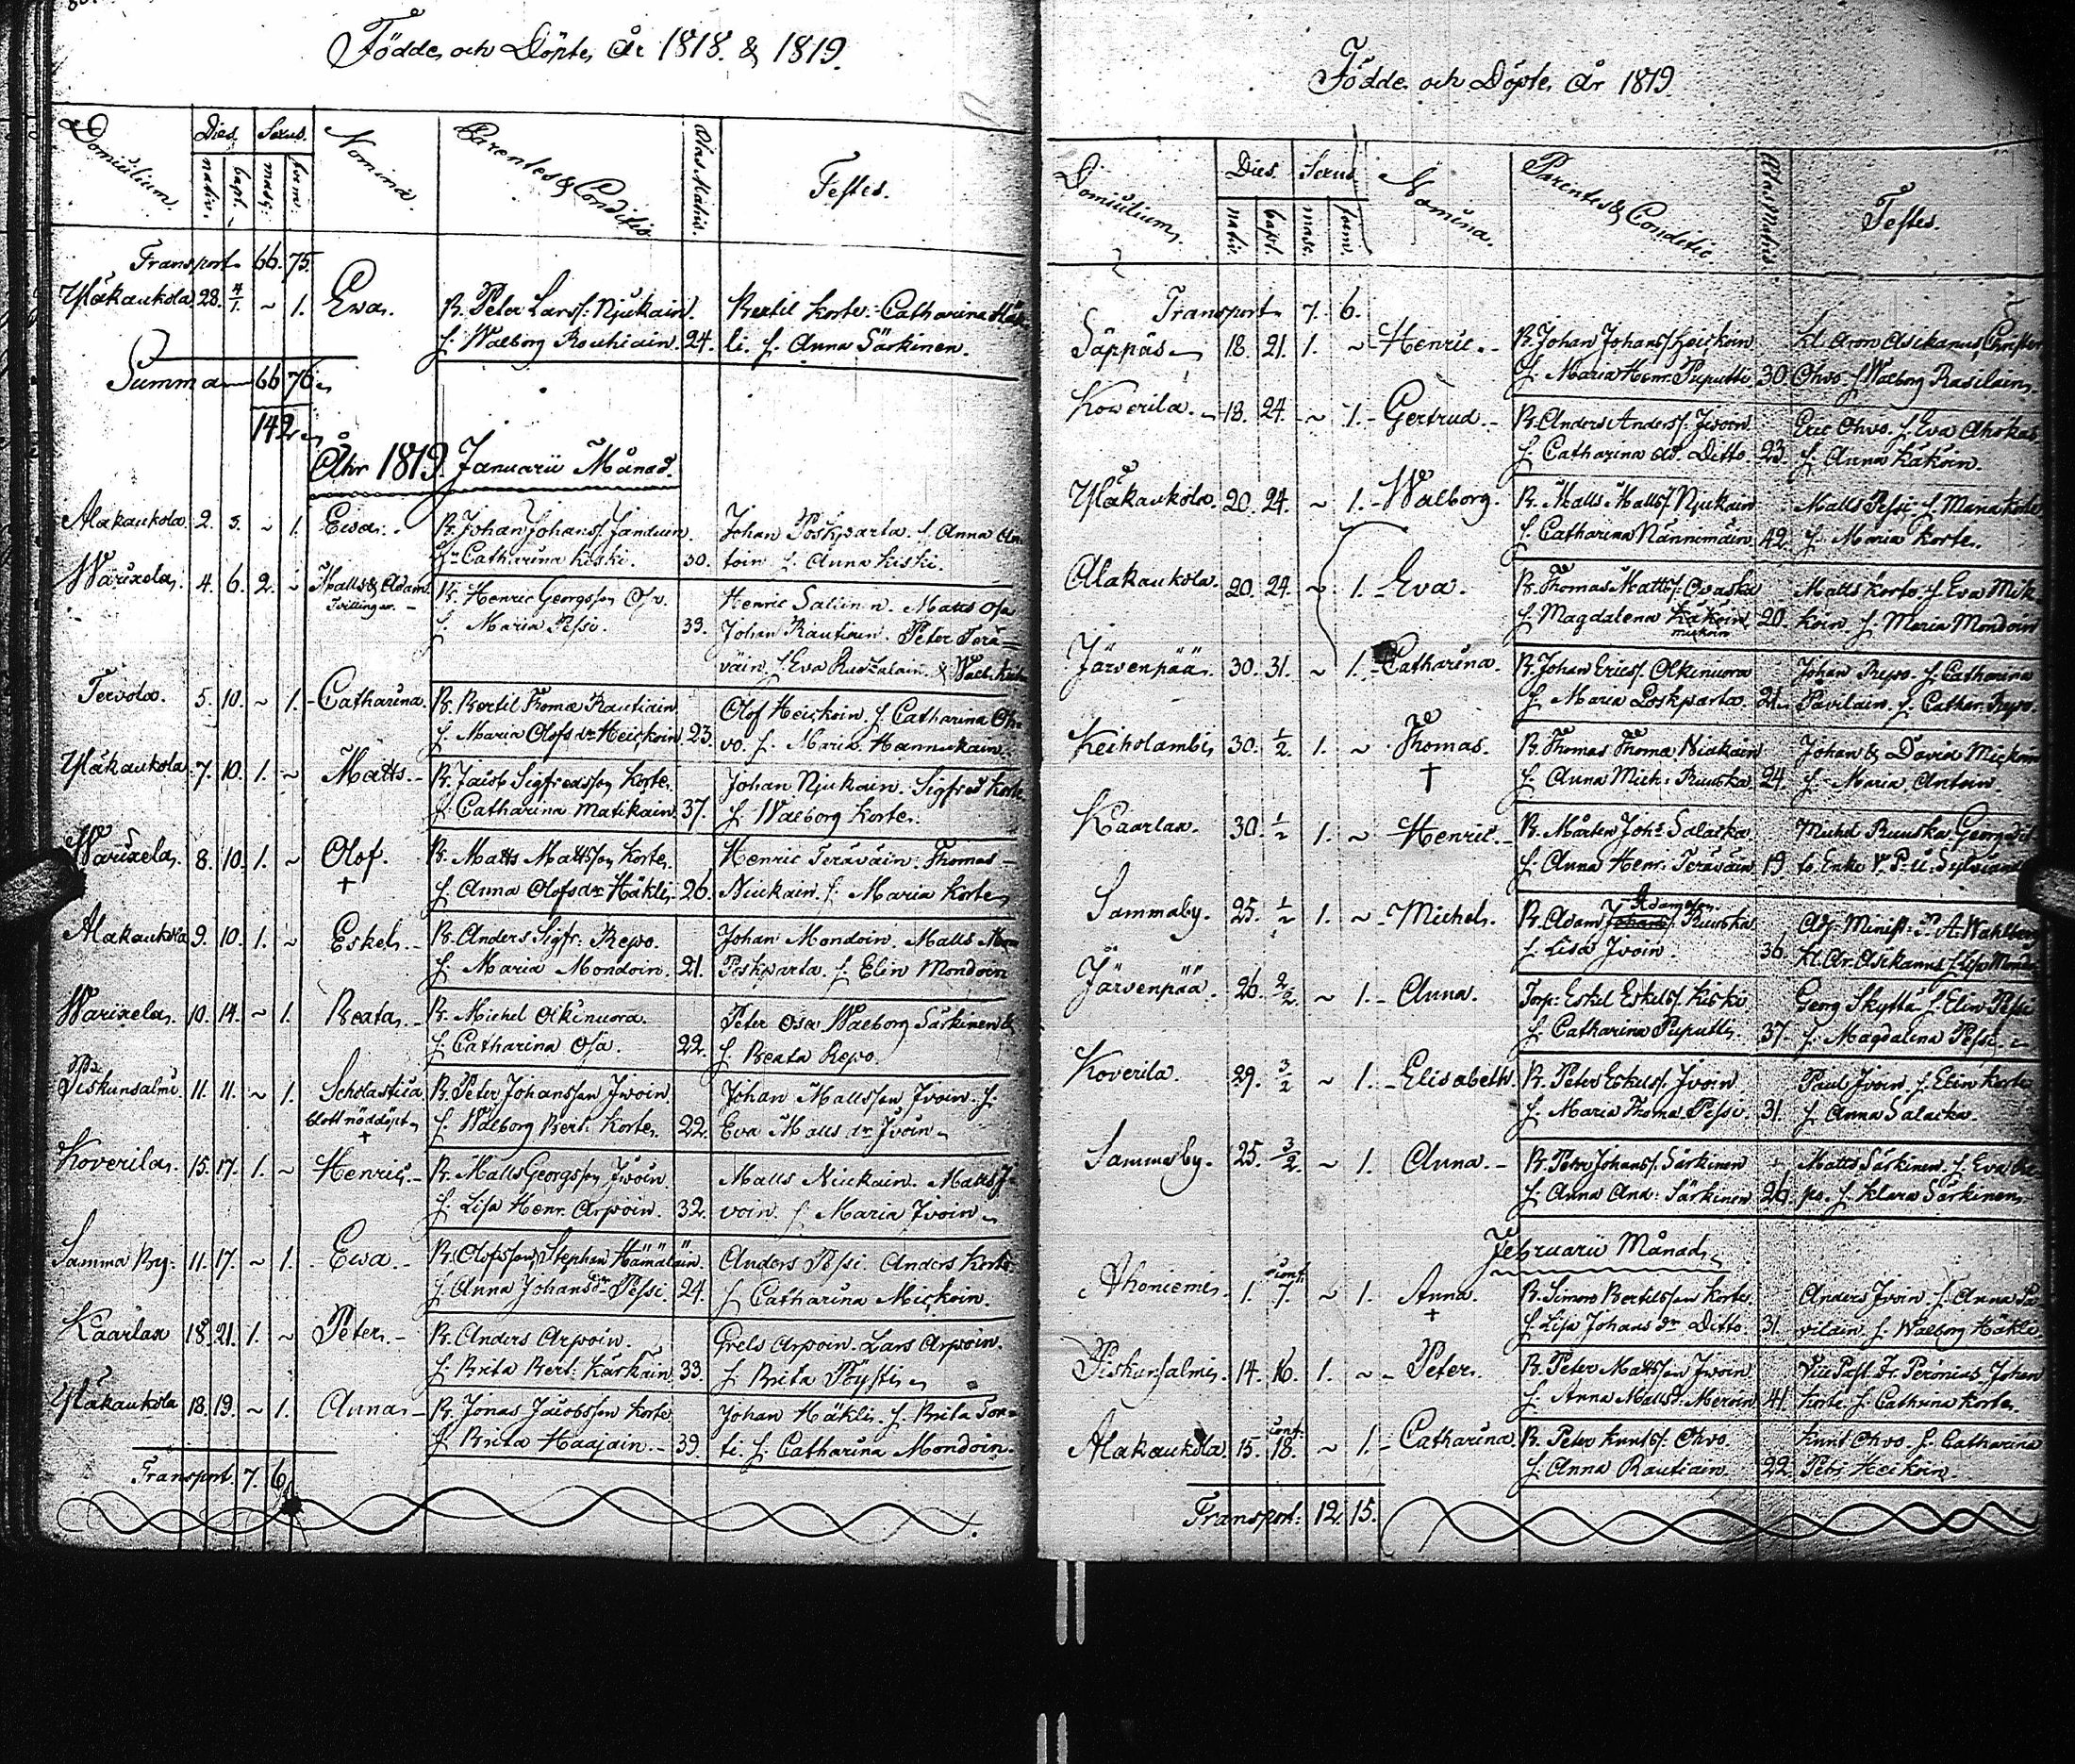 Födde och Döpte År 1818. & 1819.
Domicilium. Dies. Sexus. Nomina. Parentes & Conditio Ætas Matris. Testes.
nativ. bapt. masc: foem:
Transport 66. 75.
Yläkaukola 28. 4/1. ~ 1. Ewa. B. Peter Larss: Njukain. Bertil Korte. Catharina Häk-
h. Walborg Rouhiain. 24. li. h. Anna Särkinen.
Summa 66 76
142
Åhr 1819. Januarii Månad.
Alakaukola. 2. 3. ~ 1. Ewa. B. Johan Johanss. Jantunen. Johan Poskparta. h. Anna An
Catharina Kiski. 30. toin h. Anna Kiski.
Warixela. 4. 6. 2. ~ Matts & Adam B. Henric Georgsson Osa. Henric Matts Osa
Tvillingar. h. Maria Pessi. 33. Johan Rautiain. Peter Terä-
väin. h. Eva
Tervola. 5. 10. ~ 1. Catharina. B. Bertil Thomæ Rautiain. Olof Heickoin. h. Catharina Oh-
h. Maria Olofs dr Heickoin. 23. vo. h. Maria Hannukain.
Yläkaukola 7. 10. 1. ~ Matts. B. Jacob Sigfredsson Korte. Johan Njukain. Sigfred Korte
h. Catharina Matikain. 37. h. Walborg Korte.
Warixela. 8. 10. 1. ~ Olof. B. Matts Mattsson Korte. Henric Teräväin. Thomas
+ h. Anna Olofsdr Häkli. 26. Niukain. h. Maria Korte
Alakaukola 9. 10. 1. ~ Eskel. B. Anders Sigfr: Repo. Johan Mondoin. Matts
h. Maria Mondoin. 21. Poskparta. h. Elin Mondoin
Warixela. 10. 14. ~ 1. Beata. B. Michel Olkinuora. Peter Osa Walborg Särkinen &
h. Catharina Osa. 22. h. Beata Repo.
Piskunsalmi 11. 11. ~ 1. Scholastica B. Peter Johansson Iwoin. Johan Mattsson Ivoin. h.
blott nöddöpt h. Walborg Bert: Korte. 22. Eva Matts dr Ivoin
+
Koverila. 15. 17. 1. ~ Henric. B. Matts Georgsson Iwoin. Matts Niukain. Matts I-
h. Lisa Henr. Arpoin. 32. voin. h. Maria Ivoin
Samma By. 11. 17. ~ 1. Ewa. B. Olofsson Stephan Hämäläin. Anders Pessi. Anders Korte
h. Anna Johansdr Pessi. 24. h Catharina Mickoin.
Kaarlax 18. 21. 1. ~ Peter. B. Anders Arpoin. Grels Arpoin. Lars Arpoin.
h. Brita Bert: Kärkäin. 33. h Brita Pöysti
Yläkaukola 18. 19. ~ 1. Anna. B. Jonas Jacobsson Korte Johan Häkli. h. Brita Tor-
h Brita Haajain. 39. ti. h. Catharina Mondoin.
Transport 7. 6.
Födde och Döpte År 1819
Domicilium. Dies. Sexus Nomina. Parentes & Conditio Ætas Matris. Testes.
nativ. bapt. masc. foem.
Transport 7. 6.
Säppäs 18. 21. 1. ~ Henric. B. Johan Johanss. Heickoin Kl. Aron Asikanus
h. Maria Henr. Puputti 30. Ohvo h Walborg Rasilain
Kowerila. 18. 24. ~ 1. Gertrud. B. Anders Anderss. Iwoin Eric Ohvo. h. Eva Ahokas
h. Catharina dr. Ditto. 23. h. Anna Käköin.
Yläkaukola. 20. 24. ~ 1. Walborg. B. Matts Matss. Njukain Matts Pessi. h. Maria Korte
h. Catharina Nännimäin. 42. h. Maria Korte.
Alakaukola. 20. 24. ~ 1. Eva. B. Thomas Matts. Ovaska Matts Korte. h. Eva Mik-
h Magdalena Käköin 20. koin h Maria Mondoin
mickoin
Järvenpää. 30. 31. ~ 1. Catharina. B. Johan Ericss. Olkinuora Johan Repo. h. Catharina
h Maria Poskparta. 21. Pävilain. h. Cathar. Repo.
Keiholambi 30. 1/2 1. ~ Thomas. B. Thomas Thomæ Niakain Johan & David Mickoin
+ h. Anna Mich: Ruuska 24. h. Maria Antoin.
Kaarlax. 30. 1/2 1. ~ Henric. B. Mårten Johs Salacka Michel Ruuska Georg Dit
h. Anna Henr: Teräväin 19 to Enke
Sammaby. 25. 1/2 1. ~ Michel. B. Adam Adamsson Ruuska Adj. Minist. A. Wahlberg
h. Lisa Ivoin. 36. Kl. Ar. Asikanus h Lisa Mondo
Järvenpää. 26. 2/2. ~ 1. Anna. Torp: Eskel Eskels. Kiski Georg Skyttä h Elin Pessi
h. Catharina Puputti 37. h. Magdalena Pessi.
Koverila. 29. 3/2 ~ 1. Elisabeth. B. Peter Eskels. Ivoin Paul Ivoin. h. Elin Korte
h. Maria Thoma Pessi. 31. h Anna Salacka.
Sammaby. 25. 3/2. ~ 1. Anna. B. Peter Johanss. Särkinen Matts Särkinen. h. Eva Re-
h. Anna And: Särkinen 26. po. h. Klara Särkinen
Februarii Månad.
Ahoniemi. 1. conf. 7. ~ 1. Anna. B. Simon Bertilsson Korte. Anders Ivoin h. Anna Pä
+ h. Lisa Johans dr Ditto. 31. vilain. h. Walborg Häkli
Piskunsalmi. 14. 16. 1. ~ Peter. B. Peter Mattsson Iwoin Vice Past. Fr. Peronius. Johan
h. Anna Matts d: Meroin 41. Korte. h. Cathrina Korte.
Alakaukola. 15. conf. 18. ~ 1. Catharina. B. Peter Knuts. Ohvo. Knut Ohvo h. Catharina
h. Anna Rautiain. 22. Petr Heikoin.
Transport. 12. 15.